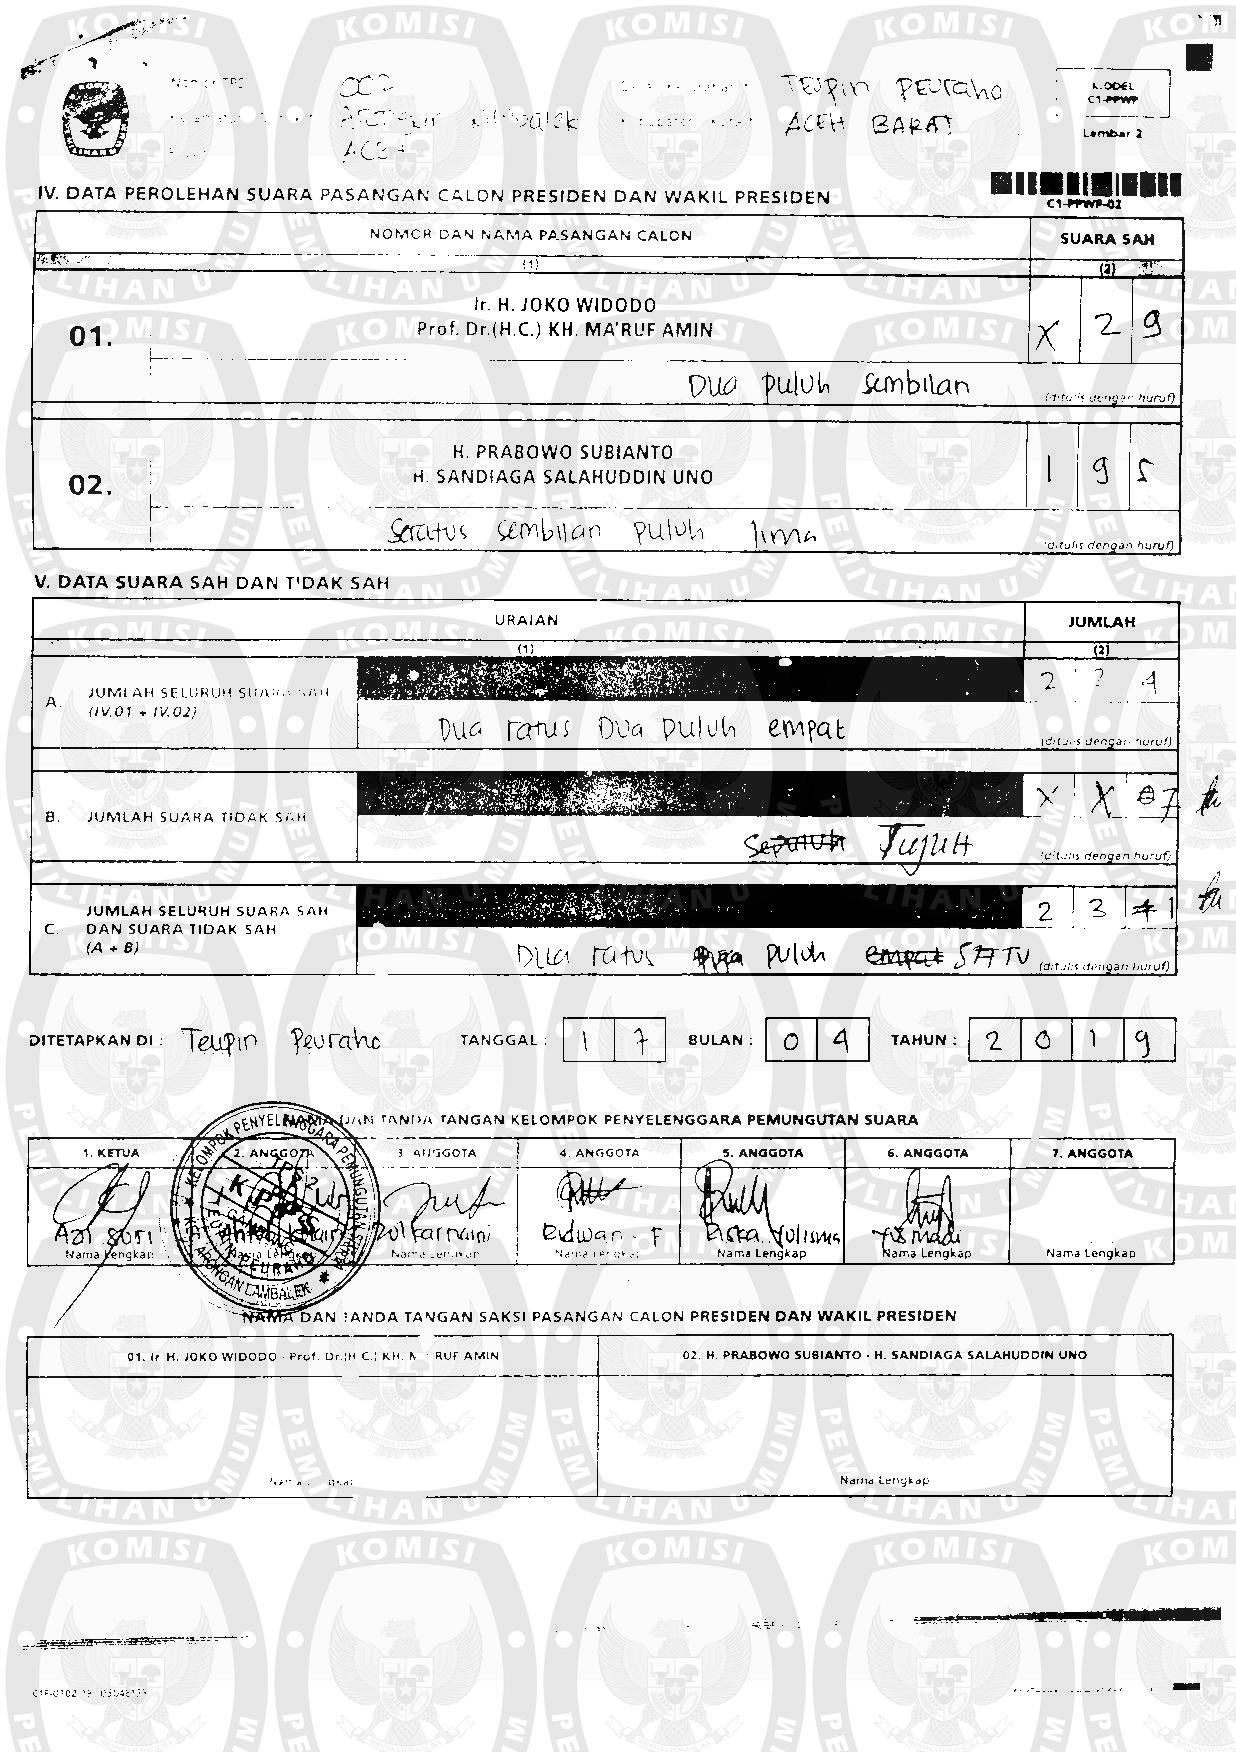 002 TEUPIN PEURAHO
ACEH BARAT
MODEL
C1-PPWP
Lembar 2
IV. DATA PEROLEHAN SUARA PASANGAN CALON PRESIDEN DAN WAKIL PRESIDEN
C1-PPWP-02
NOMOR DAN NAMA PASANGAN CALON SUARA SAH
(1) (2)
01. Ir. H. JOKO WIDODO
Prof. Dr.(H.C.) KH. MA'RUF AMIN X 2 9
Dua puluh sembilan (ditulis dengan huruf)
02. H. PRABOWO SUBIANTO
H. SANDIAGA SALAHUDDIN UNO 1 9 5
Seratus sembilan puluh lima (ditulis dengan huruf)
V. DATA SUARA SAH DAN TIDAK SAH
URAIAN JUMLAH
(1) (2)
A. JUMLAH SELURUH SUARA SAH
(IV.01 + IV.02) 2 2 4
Dua ratus Dua puluh empat (ditulis dengan huruf)
B. JUMLAH SUARA TIDAK SAH X X 7
Sepuluh Tujuh (ditulis dengan huruf)
C. JUMLAH SELURUH SUARA SAH
DAN SUARA TIDAK SAH
(A + B) 2 3 1
Dua ratus tiga puluh empat SATU (ditulis dengan huruf)
DITETAPKAN DI : Teupin Peuraho TANGGAL : 1 7 BULAN : 0 4 TAHUN : 2 0 1 9
NAMA DAN TANDA TANGAN KELOMPOK PENYELENGGARA PEMUNGUTAN SUARA
1. KETUA 2. ANGGOTA 3. ANGGOTA 4. ANGGOTA 5. ANGGOTA 6. ANGGOTA 7. ANGGOTA
Ridwan . F
Nama Lengkap Nama Lengkap Nama Lengkap Nama Lengkap Nama Lengkap Nama Lengkap Nama Lengkap
NAMA DAN TANDA TANGAN SAKSI PASANGAN CALON PRESIDEN DAN WAKIL PRESIDEN
01. Ir. H. JOKO WIDODO - Prof. Dr.(H.C.) KH. MA'RUF AMIN 02. H. PRABOWO SUBIANTO - H. SANDIAGA SALAHUDDIN UNO
Nama Lengkap